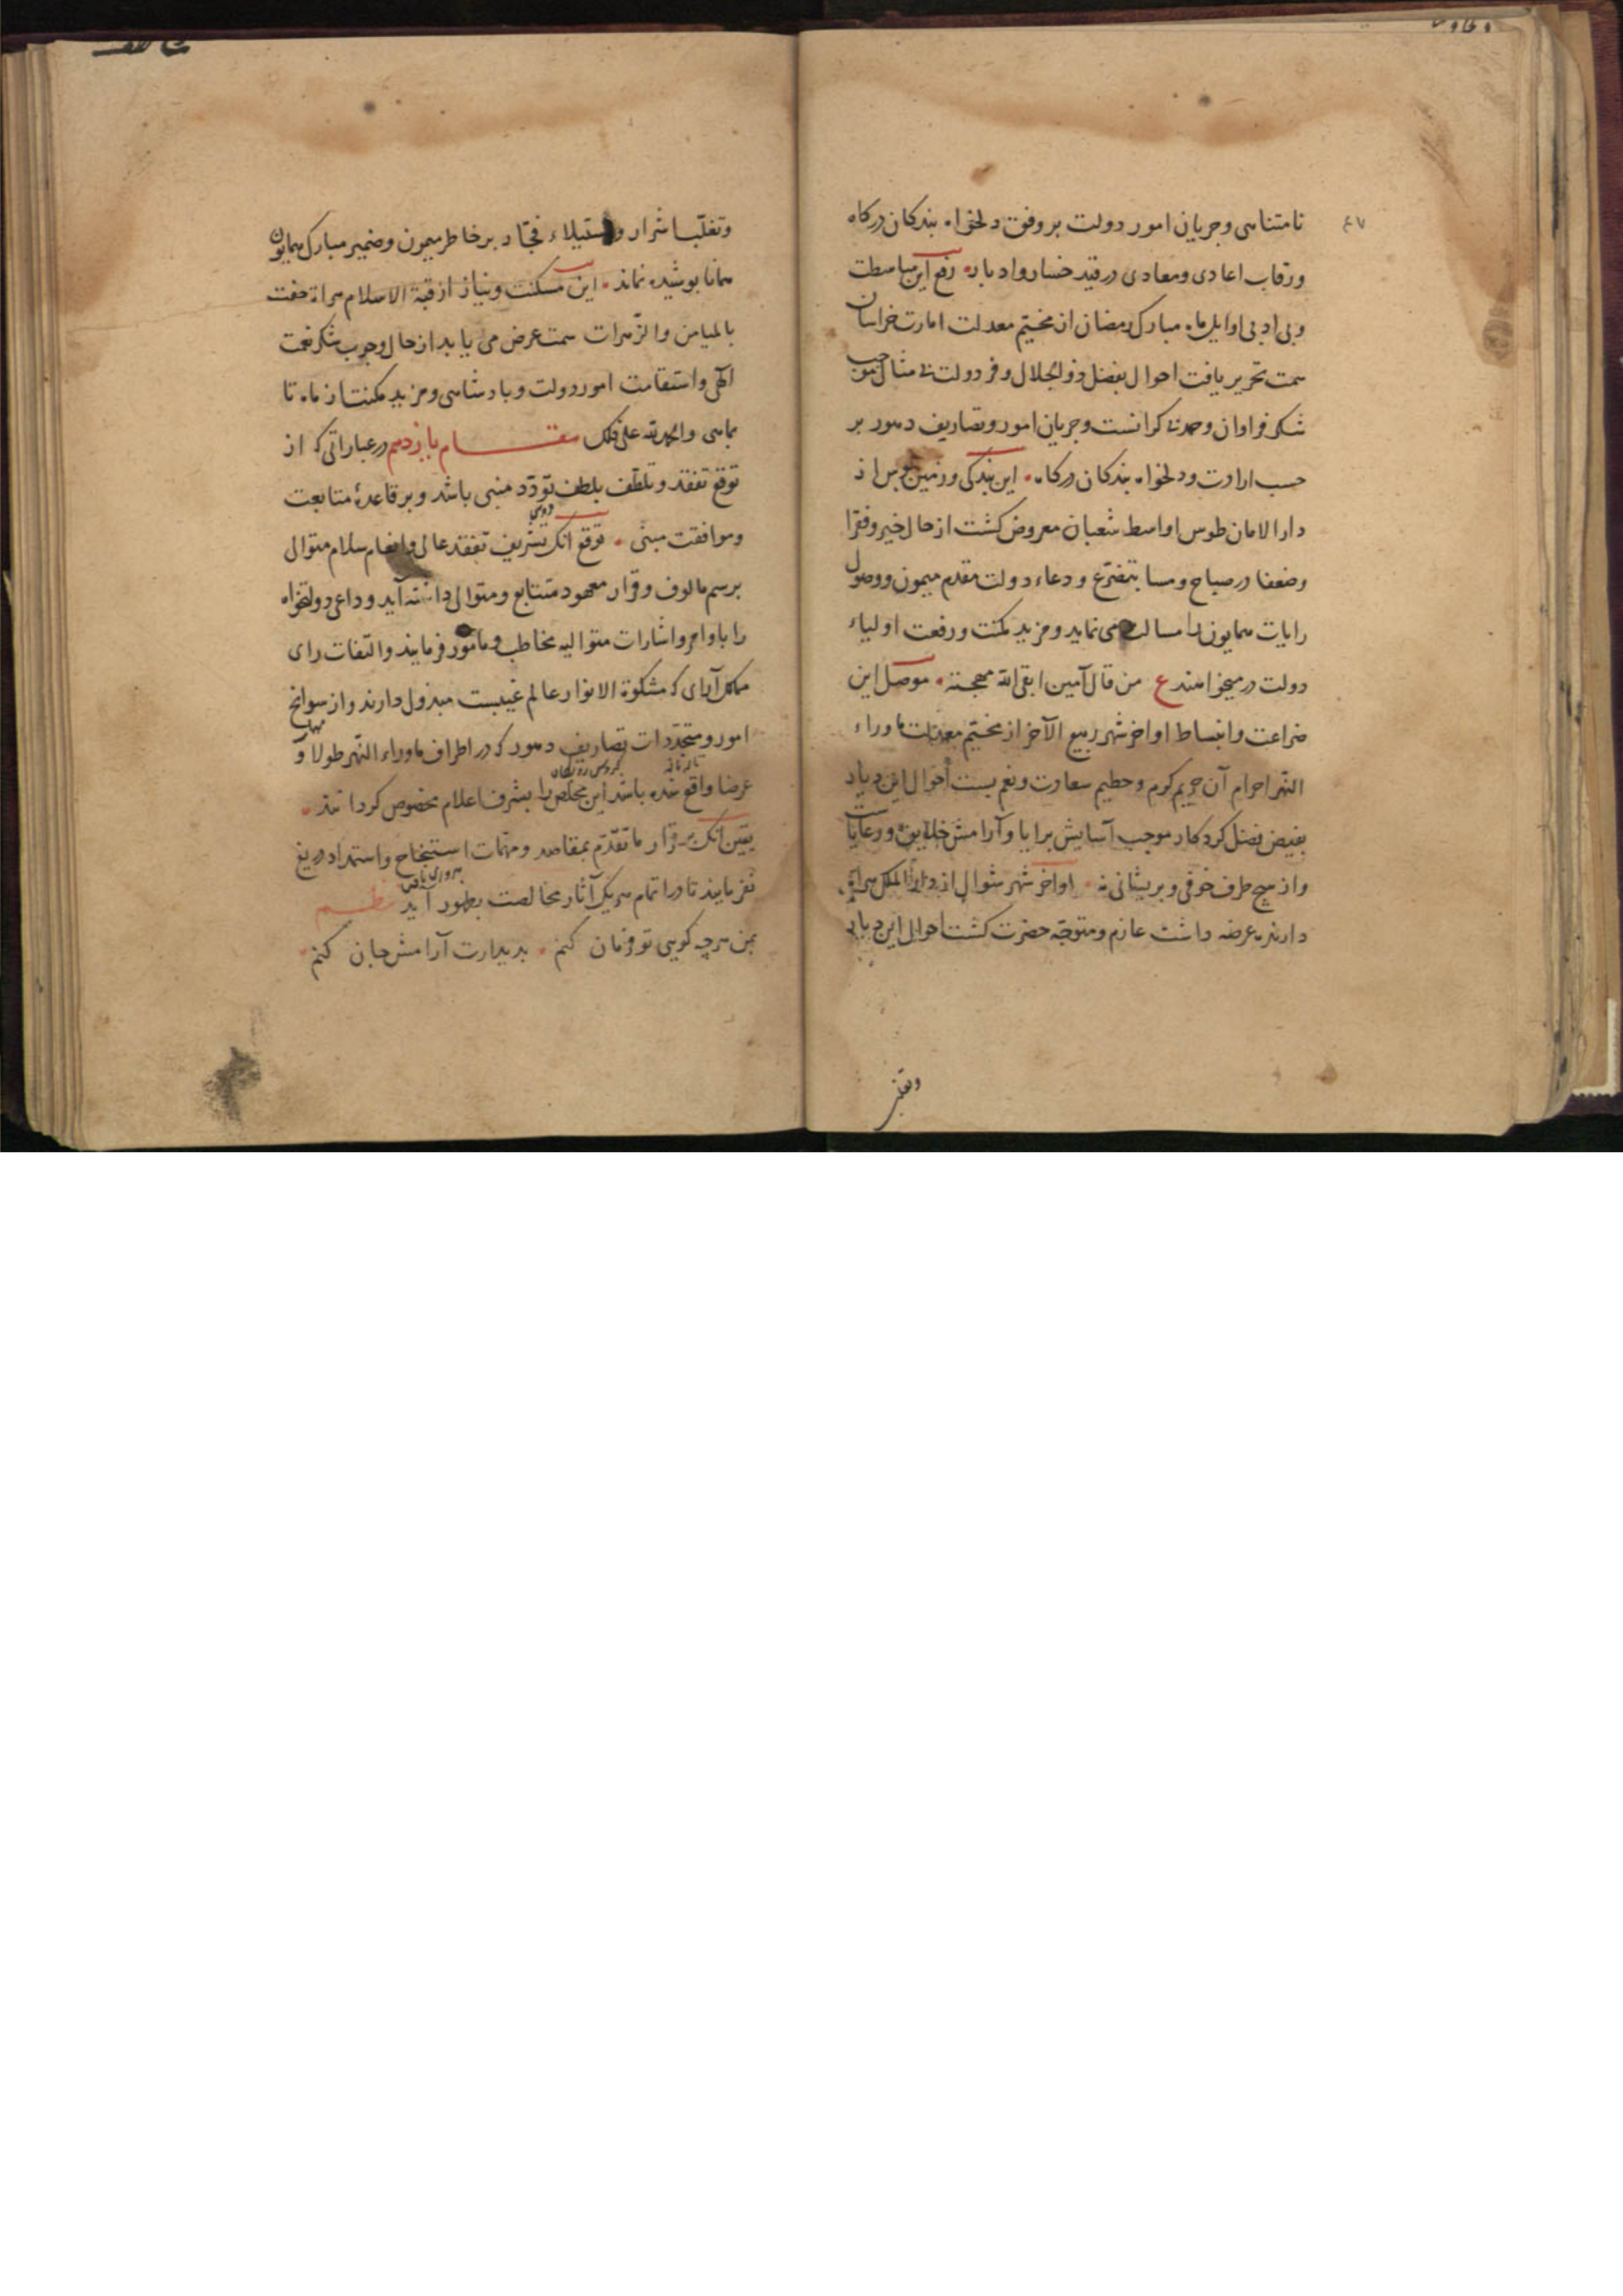 نامتناهی و جریان امور دولت بر وفق دلخواه بندکان درکاه
ورقاب اعادی ومعادی در قید خسار وادبار رفع این مباسطت
وبی ادبی اوایل ماه مبارک رمضان از مخیّم معدلت امارت خراسان
سمت تحریر یافت احوال بفضل ذوالجلال وفرّ دولت بی مثال موجب
شکر فراوان وحمد بی کرانست وجریان امور وتصاریف دهور بر
حسب ارادت ودلخواه بندکان درکاه این بندکی وزمین بوس از
دار الامان طوس اواسط شعبان معروض کشت از حال خیر وفقرا
وضعفا در صباح ومسا بتضرّع ودعاء دولت مقدم میمون ووصول
رایات همایون را مسالت می نماید ومزید مکنت ورفعت اولیاء
دولت در میخواهند ع من قال آمین ابقی الله مهجته موصل این
ضراعت وانبساط اواخر شهر ربیع الآخر از مخیّم معدلت ماوراء
النهر احرام آن حریم کرم وحطیم سعادت ونعم بست احوال این دیار
بفیض فضل کردکار موجب آسایش برایا وآرامش خلایق ورعایاست
واز هیچ طرف خوفی وبریشانی نه اواخر شهر شوال از دار الملک هراة
دارنده عرضه داشت عازم ومتوجّه حضرت کشت احوال این دیار
وتغلّب
وتغلّب اشرار واستیلاء فجّار بر خاطر میمون وضمیر مبارک همایون
همانا بوشیده نماند این مسکنت ونیاز از قبة الاسلام هراة حفت
بالمیامن والمَبرّات سمت عرض می یابد از حال وجوب شکر نعمت
الهی واستقامت امور دولت وبادشاهی ومزید مکنت از ماه تا
بماهی والحمد لله علی ذلک مقام یازدهم در عباراتی که از
توقّع تفقد وتلطّف بلطف تودّد منبی باشد وبر قاعدهٔ متابعت
وموافقت مبنی توقع انک تشریف تفقد عالی وانعام سلام متوالی
برسم مالوف وقرار معهود متتابع ومتوالی داشته آید وداعی دولتخواه
را باوامر واشارات متوالیه مخاطب ومامور فرمایند والتفات رای
ملک آرای که مشکوة الانوار عالم غیبست مبذول دارند واز سوانح
امور ومتجدّدات تصاریف دهور که در اطراف ماوراء النّهر طولا و
عرضا واقع شده باشد این مخلص را بشرف اعلام مخصوص کردانند
یقین انک بر قرار ما تقدّم بمقاصد ومهمّات استنجاح واستمداد دریغ
نفرمایند تا در اتمام هریک آثار مخالصت بظهور آید نظم
بمن هرچه کویی تو فرمان کنم بدیدارت آرامش جان کنم